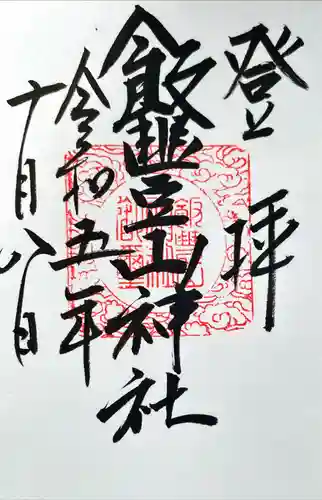 登拝
飯豐山神社
令和五年
十月八日